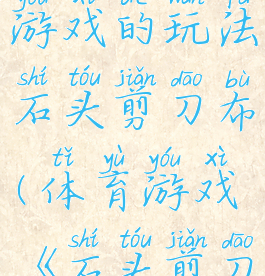 游戏的玩法
shí tóu jiǎn dāo bù
石头剪刀布
tǐ yù yóu xì
(体育游戏
shí tóu jiǎn dāo
《石头剪刀